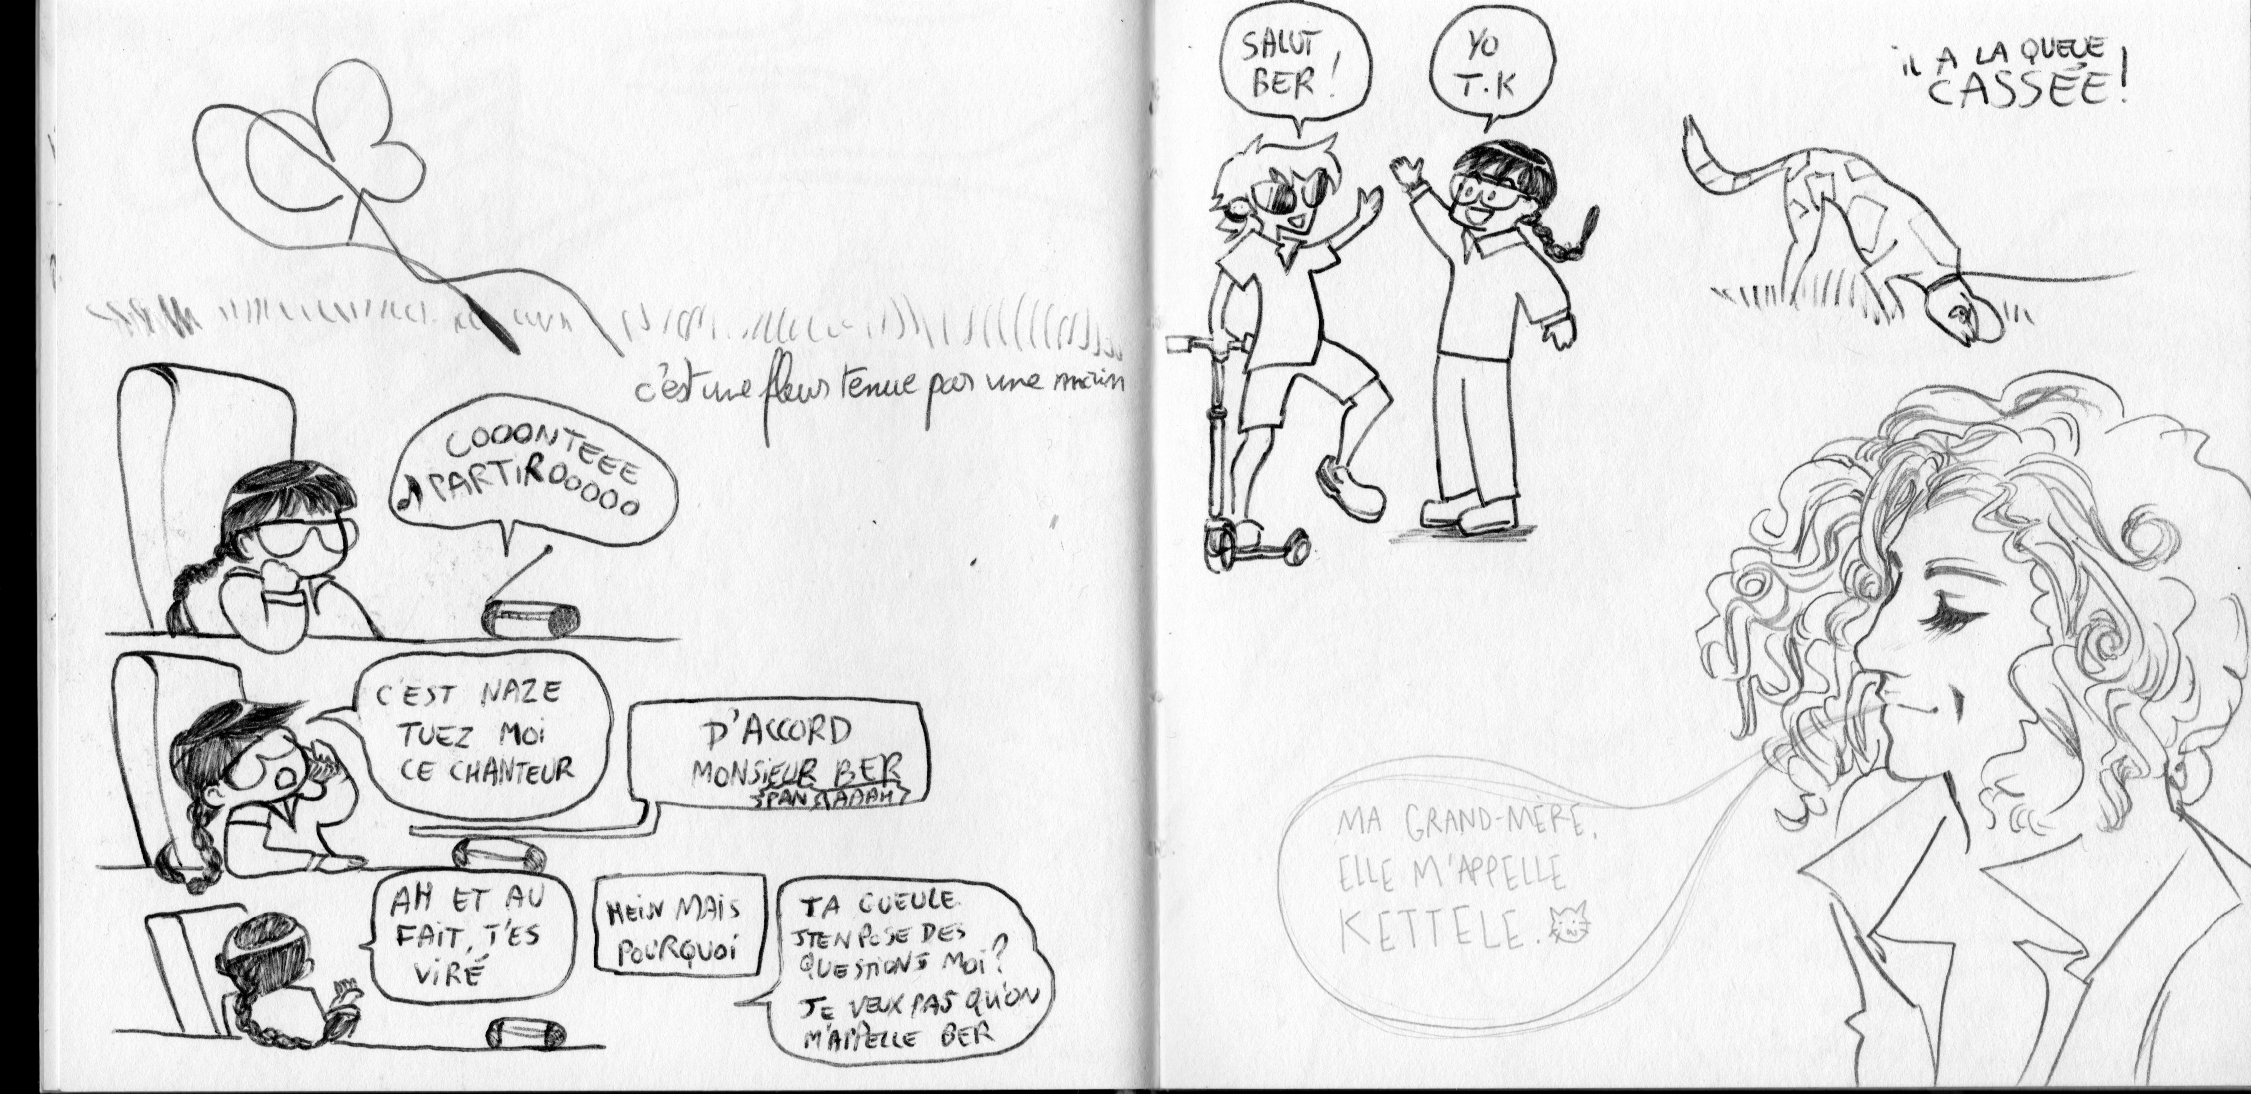 c'est une fleur tenue par une main
COOONTEEE
PARTIROOOOO
C'EST NAZE
TUEZ MOI
CE CHANTEUR
D'ACCORD
MONSIEUR BER
PAN AAAH
AH ET AU
FAIT, T'ES
VIRÉ
HEIN MAIS
POURQUOI
TA GUEULE
J'TEN POSE DES
QUESTIONS MOI?
JE VEUX PAS QU'ON
M'APPELLE BER
SALUT
BER!
YO
T.K
iL A LA QUEUE
CASSÉE!
MA GRAND-MÈRE,
ELLE M'APPELLE
KETTELE.